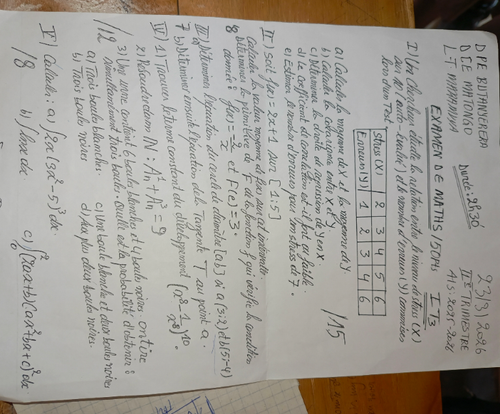 DPE BUTANYERERA
DCE MATONGO
L.T MARANGARA
Durée: 2h30
23/3/2026
IIe TRIMESTRE
A/S: 2025-2026
EXAMEN DE MATHS/50pts I T3
I) Un chercheur étudie la relation entre le niveau de stress (X)
sur 10 (auto-évalué) et le nombre d'erreurs (Y) commises
lors d'un Test.
Stress (X) 2 3 4 5 6
Erreurs (Y) 1 2 3 4 6
a) Calculer la moyenne de X et la moyenne de Y
b) Calculer la Covariance entre X et Y
c) Déterminer la droite de régression de Y en X
d) Le coefficient de corrélation est-il fort ou faible.
e) Estimer le nombre d'erreurs pour un stress de 7. /15
II) Soit f(x) = 2x + 1 sur [1; 5]
Calculer la valeur moyenne de f sur cet intervalle
Déterminer la primitive de F de la fonction f qui vérifie la condition
8 donnée: f(x) = et F(e) = 3.
III) Déterminer l'équation du cercle de diamètre [ab] si a(3;2) et b(5;-4)
7 b) Déterminer ensuite l'équation de la Tangente T au point a.
IV) 1) Trouver le terme constant du développement
2) Résoudre dans N:
3) Une urne contient 6 boules blanches et 4 boules noires on tire
simultanément trois boules. Quelle est la probabilité d'obtenir:
/12 a) Trois boules blanches. c) Une boule blanche et deux boules noires
b) Trois boules noires d) Au plus deux boules noires.
V) Calculer: a) ∫2x(3x²-5)³dx.
/8 b) ∫ln x dx c) ∫(2ax+b)(ax²+bx+c)⁵dx